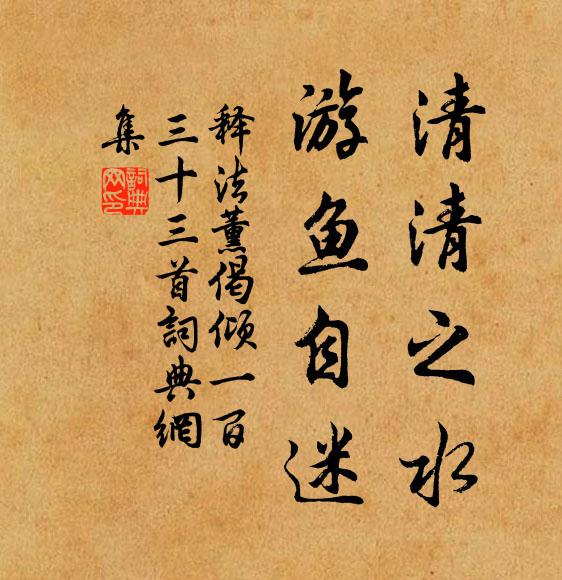 清清之水
游鱼自迷
释法薰偈倾一百
三十三首詞典網
集
詞典网印